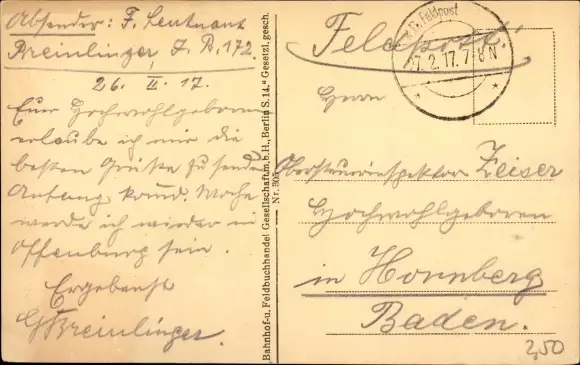 Absender: F. Leutnant
Breinlinger, J. R. 172.
26. II. 17.
Euer Hochwohlgeboren
erlaube ich mir die
besten Grüße zu senden
Anfang komd. Woche
werde ich wieder in
Offenburg sein.
Ergebenst
Breinlinger.
Bahnhof- u. Feldbuchhandel Gesellschaft m. b. H., Berlin S. 14." Gesetzl. gesch.
Nr.
"Feldpost."
Feldpost
2.17. 7-8 N
Herrn
Obersteuerinspektor Zeiser
Hochwohlgeboren
in Hornberg
Baden.
2,50